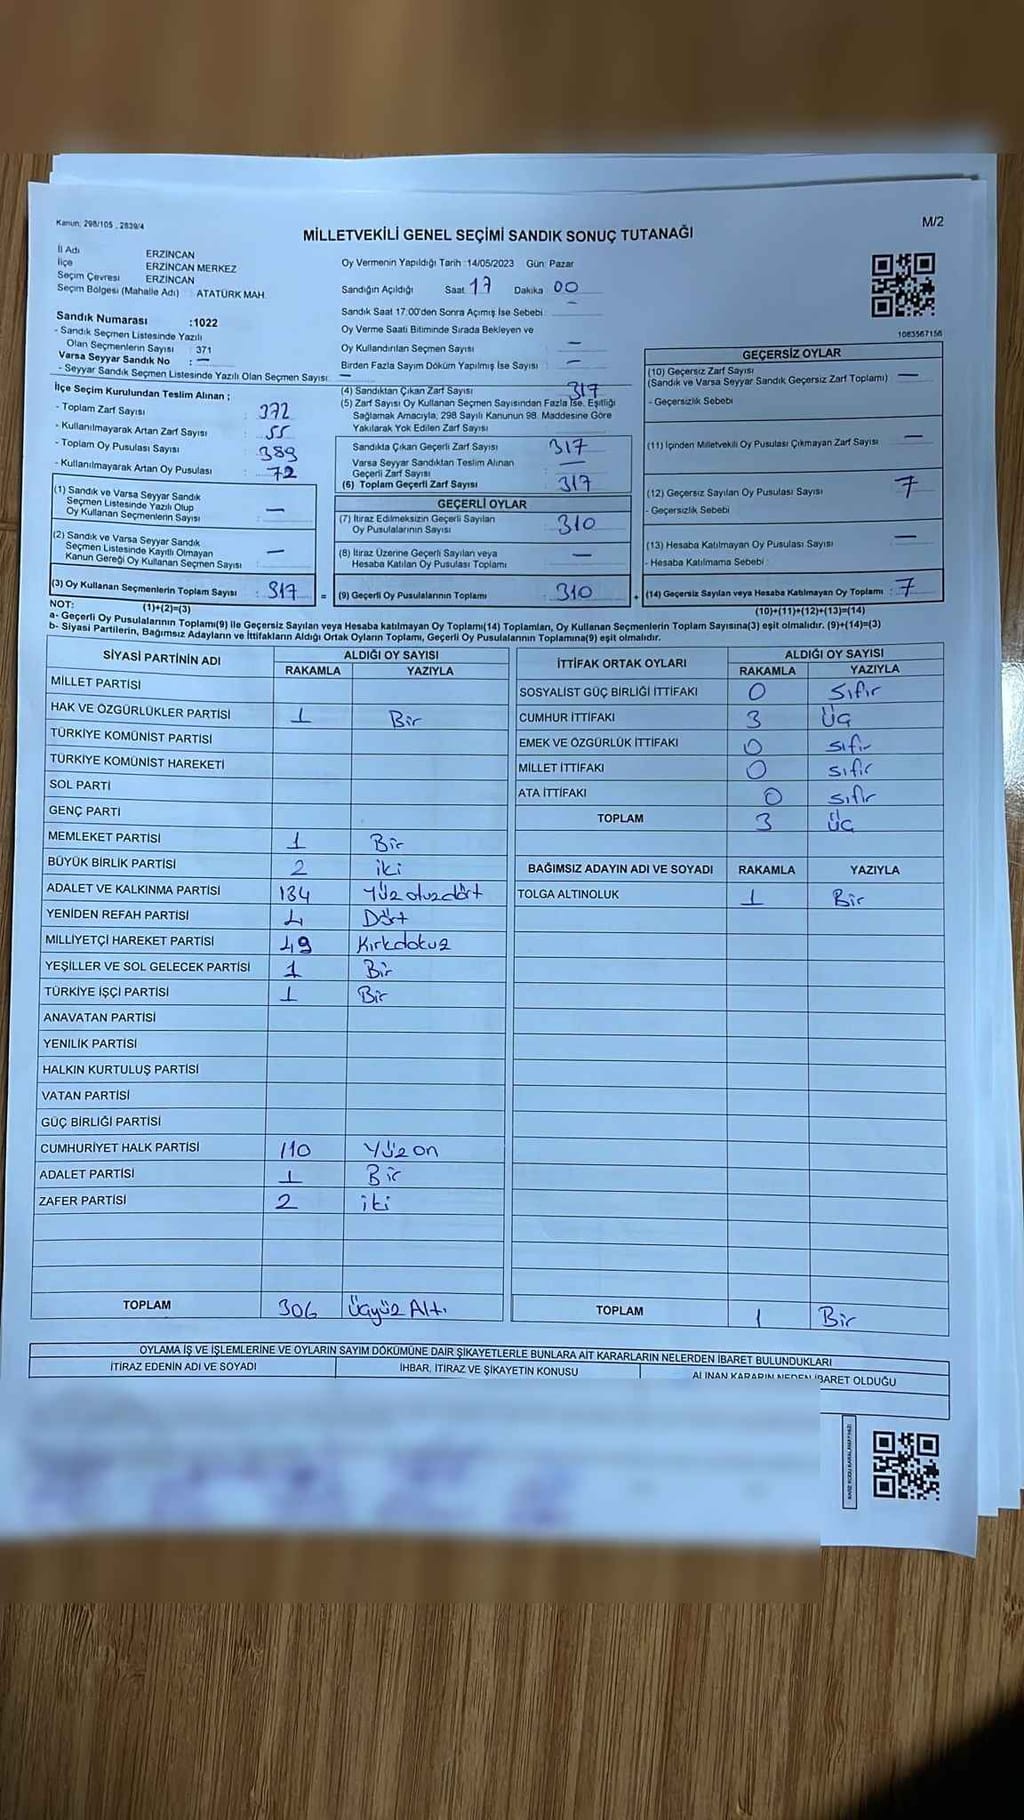 Kanun: 298/105 , 2839/4
M/2
MİLLETVEKİLİ GENEL SEÇİMİ SANDIK SONUÇ TUTANAĞI
İl Adı ERZİNCAN
İlçe ERZİNCAN MERKEZ
Seçim Çevresi ERZİNCAN
Seçim Bölgesi (Mahalle Adı) : ATATÜRK MAH.
Sandık Numarası :1022
- Sandık Seçmen Listesinde Yazılı
Olan Seçmenlerin Sayısı : 371
Varsa Seyyar Sandık No : —
- Seyyar Sandık Seçmen Listesinde Yazılı Olan Seçmen Sayısı: —
İlçe Seçim Kurulundan Teslim Alınan ;
- Toplam Zarf Sayısı : 372
- Kullanılmayarak Artan Zarf Sayısı : 55
- Toplam Oy Pusulası Sayısı : 389
- Kullanılmayarak Artan Oy Pusulası : 72
(1) Sandık ve Varsa Seyyar Sandık
Seçmen Listesinde Yazılı Olup
Oy Kullanan Seçmenlerin Sayısı : —
(2) Sandık ve Varsa Seyyar Sandık
Seçmen Listesinde Kayıtlı Olmayan
Kanun Gereği Oy Kullanan Seçmen Sayısı : —
(3) Oy Kullanan Seçmenlerin Toplam Sayısı : 317
(1)+(2)=(3)
Oy Vermenin Yapıldığı Tarih :14/05/2023 Gün: Pazar
Sandığın Açıldığı Saat 17 Dakika 00
Sandık Saat 17:00'den Sonra Açımış İse Sebebi : —
Oy Verme Saati Bitiminde Sırada Bekleyen ve
Oy Kullandırılan Seçmen Sayısı —
Birden Fazla Sayım Döküm Yapılmış İse Sayısı : —
(4) Sandıktan Çıkan Zarf Sayısı 317
(5) Zarf Sayısı Oy Kullanan Seçmen Sayısından Fazla İse, Eşitliği
Sağlamak Amacıyla, 298 Sayılı Kanunun 98. Maddesine Göre
Yakılarak Yok Edilen Zarf Sayısı :
Sandıkla Çıkan Geçerli Zarf Sayısı 317
Varsa Seyyar Sandıktan Teslim Alınan
Geçerli Zarf Sayısı —
(6) Toplam Geçerli Zarf Sayısı 317
GEÇERLİ OYLAR
(7) İtiraz Edilmeksizin Geçerli Sayılan
Oy Pusulalarının Sayısı : 310
(8) İtiraz Üzerine Geçerli Sayılan veya
Hesaba Katılan Oy Pusulası Toplamı : —
= (9) Geçerli Oy Pusulalarının Toplamı : 310
1083567156
GEÇERSİZ OYLAR
(10) Geçersiz Zarf Sayısı
(Sandık ve Varsa Seyyar Sandık Geçersiz Zarf Toplamı) : —
- Geçersizlik Sebebi
(11) İçinden Milletvekili Oy Pusulası Çıkmayan Zarf Sayısı —
(12) Geçersiz Sayılan Oy Pusulası Sayısı 7
- Geçersizlik Sebebi
(13) Hesaba Katılmayan Oy Pusulası Sayısı —
- Hesaba Katılmama Sebebi :
+ (14) Geçersiz Sayılan veya Hesaba Katılmayan Oy Toplamı : 7
(10)+(11)+(12)+(13)=(14)
NOT:
a- Geçerli Oy Pusulalarının Toplamı(9) ile Geçersiz Sayılan veya Hesaba katılmayan Oy Toplamı(14) Toplamları, Oy Kullanan Seçmenlerin Toplam Sayısına(3) eşit olmalıdır. (9)+(14)=(3)
b- Siyasi Partilerin, Bağımsız Adayların ve İttifakların Aldığı Ortak Oyların Toplamı, Geçerli Oy Pusulalarının Toplamına(9) eşit olmalıdır.
SİYASİ PARTİNİN ADI ALDIĞI OY SAYISI
RAKAMLA YAZIYLA
MİLLET PARTİSİ
HAK VE ÖZGÜRLÜKLER PARTİSİ 1 Bir
TÜRKİYE KOMÜNİST PARTİSİ
TÜRKİYE KOMÜNİST HAREKETİ
SOL PARTİ
GENÇ PARTİ
MEMLEKET PARTİSİ 1 Bir
BÜYÜK BİRLİK PARTİSİ 2 iki
ADALET VE KALKINMA PARTİSİ 134 Yüz otuzdört
YENİDEN REFAH PARTİSİ 4 Dört
MİLLİYETÇİ HAREKET PARTİSİ 49 Kırkdokuz
YEŞİLLER VE SOL GELECEK PARTİSİ 1 Bir
TÜRKİYE İŞÇİ PARTİSİ 1 Bir
ANAVATAN PARTİSİ
YENİLİK PARTİSİ
HALKIN KURTULUŞ PARTİSİ
VATAN PARTİSİ
GÜÇ BİRLİĞİ PARTİSİ
CUMHURİYET HALK PARTİSİ 110 Yüz on
ADALET PARTİSİ 1 Bir
ZAFER PARTİSİ 2 iki
TOPLAM 306 Üçyüz Altı
İTTİFAK ORTAK OYLARI ALDIĞI OY SAYISI
RAKAMLA YAZIYLA
SOSYALİST GÜÇ BİRLİĞİ İTTİFAKI 0 Sıfır
CUMHUR İTTİFAKI 3 Üç
EMEK VE ÖZGÜRLÜK İTTİFAKI 0 sıfır
MİLLET İTTİFAKI 0 sıfır
ATA İTTİFAKI 0 sıfır
TOPLAM 3 Üç
BAĞIMSIZ ADAYIN ADI VE SOYADI RAKAMLA YAZIYLA
TOLGA ALTINOLUK 1 Bir
TOPLAM 1 Bir
OYLAMA İŞ VE İŞLEMLERİNE VE OYLARIN SAYIM DÖKÜMÜNE DAİR ŞİKAYETLERLE BUNLARA AİT KARARLARIN NELERDEN İBARET BULUNDUKLARI
İTİRAZ EDENİN ADI VE SOYADI İHBAR, İTİRAZ VE ŞİKAYETİN KONUSU ALINAN KARARIN NEDEN İBARET OLDUĞU